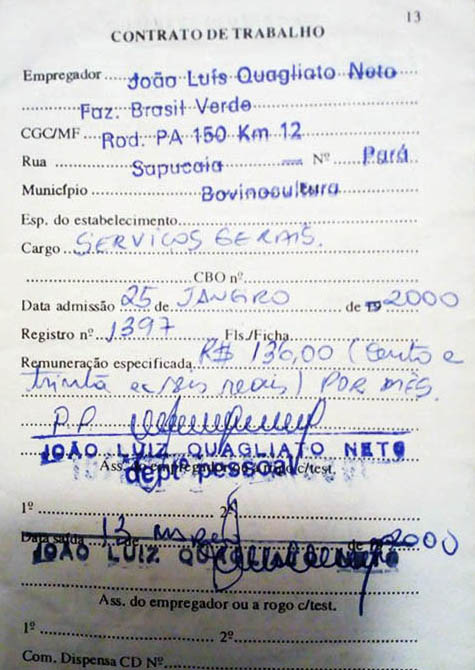 13
CONTRATO DE TRABALHO
Empregador João Luís Quagliato Neto
Faz. Brasil Verde
CGC/MF Rod. PA 150 Km 12
Rua Sapucaia Nº Pará
Município Bovinocultura
Esp. do estabelecimento
Cargo SERVIÇOS GERAIS.
CBO nº
Data admissão 25 de JANEIRO de 19 2000
Registro nº 1397 Fls./Ficha
Remuneração especificada R$ 136,00 (Cento e
trinta e seis reais) POR MÊS.
P.P.
JOÃO LUIZ QUAGLIATO NETO
Ass. do empregador ou a rogo c/test.
deptº pessoal
1º 2º
Data saída 13 de março de 2000
JOÃO LUIZ QUAGLIATO NETO
Ass. do empregador ou a rogo c/test.
1º 2º
Com. Dispensa CD Nº